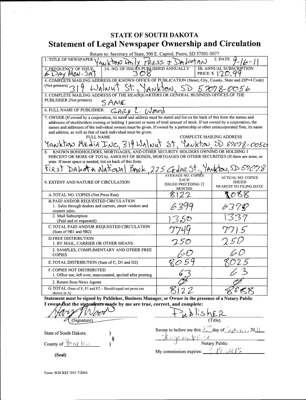 STATE OF SOUTH DAKOTA
Statement of Legal Newspaper Ownership and Circulation
Return to: Secretary of State, 500 E. Capitol, Pierre, SD 57501-5077
1. TITLE OF NEWSPAPER Yankton Daily Press & Dakotan 2. DATE 9-16-11
3. FREQUENCY OF ISSUE 3A. NO. OF ISSUES PUBLISHED ANNUALLY 3B. ANNUAL SUBSCRIPTION
6 Day Mon-Sat 308 PRICE $ 120.99
4. COMPLETE MAILING ADDRESS OF KNOWN OFFICE OF PUBLICATION (Street, City, County, State and ZIP+4 Code)
(Not printers) 319 Walnut St., Yankton, SD 57078-0056
5. COMPLETE MAILING ADDRESS OF THE HEADQUARTERS OR GENERAL BUSINESS OFFICES OF THE
PUBLISHER (Not printers) SAME
6. FULL NAME OF PUBLISHER: Gary L. Wood
7. OWNER (If owned by a corporation, its name and address must be stated and also immediately thereunder the names and
addresses of stockholders owning or holding 1 percent or more of total amount of stock. If not owned by a corporation, the
names and addresses of the individual owners must be given. If owned by a partnership or other unincorporated firm, its name
and address, as well as that of each individual must be given.
FULL NAME COMPLETE MAILING ADDRESS
Yankton Media Inc, 319 Walnut St., Yankton, SD 57078-0056
8. KNOWN BONDHOLDERS, MORTGAGES, AND OTHER SECURITY HOLDERS OWNING OR HOLDING 1
PERCENT OR MORE OF TOTAL AMOUNT OF BONDS, MORTGAGES OR OTHER SECURITIES (If there are none, so
state. If more space is needed, list on back of this form.
First Dakota National Bank 225 Cedar St, Yankton, SD 57078
9. EXTENT AND NATURE OF CIRCULATION
AVERAGE NO. COPIES EACH ISSUED PRECEDING 12 MONTHS
ACTUAL NO. COPIES ISSUED NEAREST TO FILING DATE
A. TOTAL NO. COPIES (Net Press Run) 8122
B. PAID AND/OR REQUESTED CIRCULATION
1. Sales through dealers and carriers, street vendors and
counter sales. 6399 6378
2. Mail Subscription
(Paid and or requested) 1350 1337
C. TOTAL PAID AND/OR REQUESTED CIRCULATION
(Sum of 9B1 and 9B2) 7749 7715
D. FREE DISTRIBUTION
1. BY MAIL, CARRIER OR OTHER MEANS 250 250
2. SAMPLES, COMPLIMENTARY AND OTHER FREE
COPIES 60 60
E. TOTAL DISTRIBUTION (Sum of C, D1 and D2) 8059 8025
F. COPIES NOT DISTRIBUTED
1. Office use, left over, unaccounted, spoiled after printing 63 63
2. Return from News Agents
G. TOTAL (Sum of E, F1 and F2 - Should equal net press run
shown in A) 8122 8088
Statement must be signed by Publisher, Business Manager, or Owner in the presence of a Notary Public
I swear that the statements made by me are true, correct, and complete:
Gary L Wood Publisher
(Signature) (Title)
State of South Dakota )
Sworn to before me this day of
County of Yankton )
Notary Public
(Seal) My commission expires:
Form: SOS REC 051 7/2004